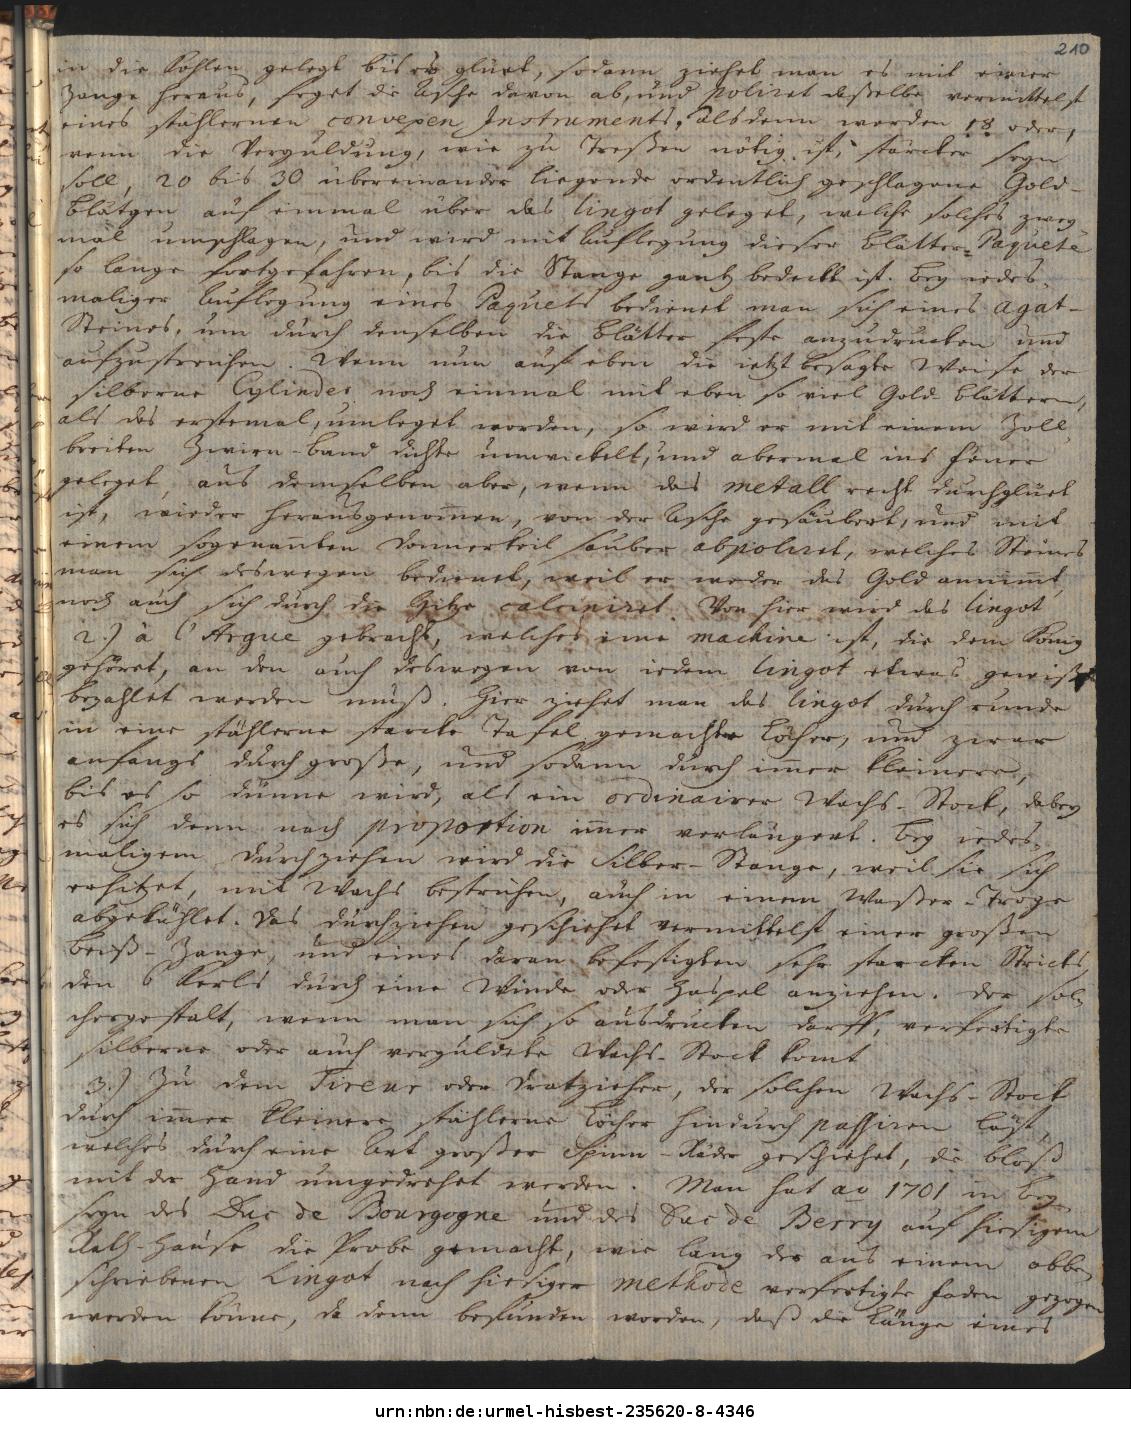 210
in die Kohlen gelegt bis es glüet, sodann ziehet man es mit einer
Zange heraus, feget die Asche davon ab, und poliret deßelbe vermittelst
eines stählernen convexen Instruments. Alsdenn werden 18 oder,
wenn die Vergüldung, wie zu Treßen nötig ist, stärcker seyn
soll, 20 bis 30 übereinander liegende ordentlich geschlagene Gold-
Blätgen auf einmal über das lingot geleget, welche solches zwey
mal umschlagen, und wird mit Auflegung dieser Blätter-Paquete
so lange fortgefahren, bis die Stange gantz bedeckt ist. Bey iedes-
maliger Auflegung eines Paquets bedienet man sich eines Agat-
Steines, um durch denselben die Blätter feste anzudrucken und
aufzustreichen. Wenn nun auf eben die ietzt besagte Weise der
silberne Cylinder noch einmal mit eben so viel Gold Blättern,
als das erstemal, umleget worden, so wird er mit einem Zoll
breiten Zwirn-Band dichte umwickelt, und abermal ins Feuer
geleget, aus demselben aber, wenn das metall recht durchglüet
ist, wieder herausgenommen, von der Asche gesäubert, und mit
einem sogenannten Donnerkeil sauber abpoliret, welches Steines
man sich deswegen bedienet, weil er weder das Gold annimmt,
noch auch sich durch die Hitze calciniret. Von hier wird das lingot
2.) à l'Argue gebracht, welches eine machine ist, die dem König
gehöret, an den auch deswegen von iedem lingot etwas gewißes
bezahlet werden muß. Hier ziehet man das lingot durch runde
in eine stählerne starcke Tafel gemachte Löcher, und zwar
anfangs durch große, und sodann durch immer kleinere,
bis es so dünne wird, als ein ordinairer Wachs-Stock, dabey
es sich denn nach proportion immer verlängert. Bey iedes-
maligem Durchziehen wird die Silber-Stange, weil sie sich
erhitzet, mit Wachs bestrichen, auch in einem Waßer-Troge
abgekühlet. Das durchziehen geschiehet vermittelst einer großen
Beiß-Zange, und eines daran befestigten sehr starcken Stricks,
den 6 Kerls durch eine Winde oder Haspel anziehen. Der sol-
chergestalt, wenn man sich so ausdrucken darff, verfertigte
silberne oder auch vergüldete Wachs-Stock komt
3.) Zu dem Tireur oder Dratzieher, der solchen Wachs-Stock
durch immer kleinere stählerne Löcher hindurch passiren läst,
welches durch eine Art großer Spinn-Räder geschiehet, die bloß
mit der Hand umgedrehet werden. Man hat ao 1701 in Bey-
seyn des Duc de Bourgogne und des Duc de Berry auf hiesigem
Rath-Hause die Probe gemacht, wie lang der aus einem obbe-
schriebenen Lingot nach hiesiger methode verfertigte Faden gezogen
werden könne, da denn befunden worden, daß die Länge eines
urn:nbn:de:urmel-hisbest-235620-8-4346